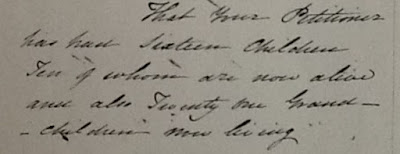 That Your Petitioner
has had Sixteen Children
Ten of whom are now alive
and also Twenty One Grand-
-children now living